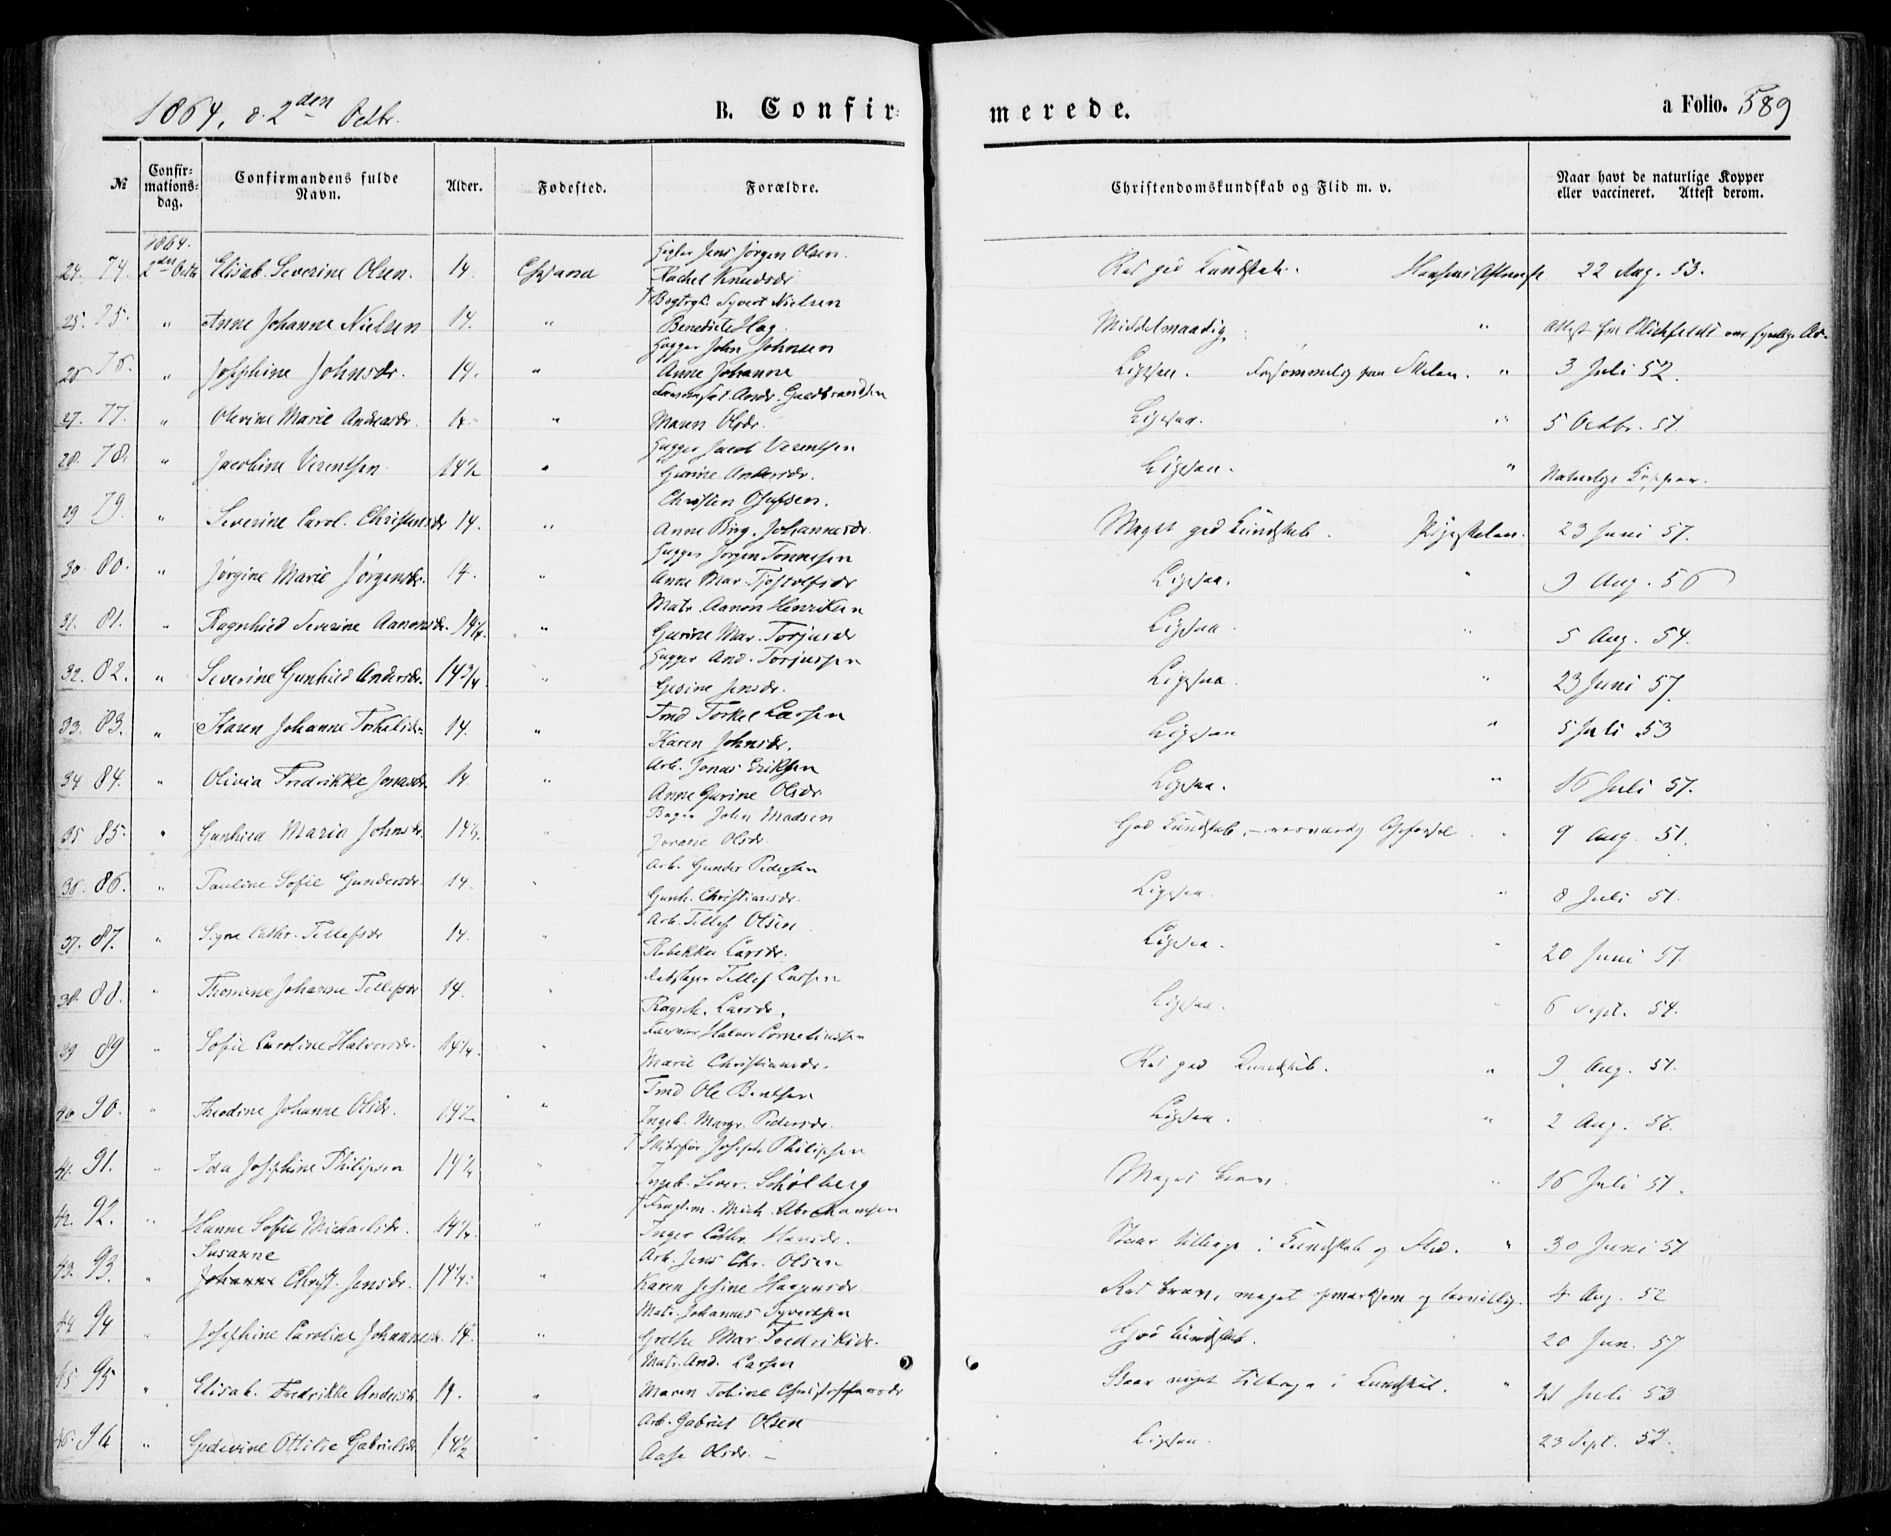 1864, d. 2den Octbr.
B. Confirmerede.
a Folio. 589
№
Confirmationsdag.
Confirmandens fulde Navn.
Alder.
Fødested.
Forældre.
Christendomskundskab og Flid m. v.
Naar havt de naturlige Kopper eller vaccineret. Attest derom.
1864.
24. 74. 2den Octb Elisab. Severine Olsen. 14. Jens Jørgen Olsen Rachel Knudsdr 22 Aug. 53.
25. 75. " Anne Johanne Nielsen 14. " † Syvert Nielsen Benedicte Hag. Middelmaadig "
26 76. " Josephine Johnsdr. 14. " Hugger John Johnsen Anne Johanne Ligesaa. Forsømmelig " 3 Juli 52.
27. 77. " Olevine Marie Andreasdr. 14. " Andr. Guldbrandsen Maren Olsdr. Ligesaa. " 5 Octbr. 51.
28. 78. " Jacobine Verentsen 14½ " Hugger Jacob Verentsen Gurine Andersdr. Ligesaa. " Naturlige Kopper.
29 79. " Severine Carol. Christensdr 14. " Christen Osufsen. Anne Birg. Johannesdr. Meget god Kundskab. Pigeskolen. 23 Juni 57.
30. 80. " Jørgine Marie Jørgensdr. 14. " Hugger Jørgen Tønnesen Anne Mar. Tjostolfsdr Ligesaa. " 9 Aug. 56
31. 81. " Ragnhild Severine Aanonsdr. 14¼. " Matr. Aanon Henriksen Gurine Mar. Torjusdr Ligesaa. " 5 Aug. 54.
32. 82. " Severine Gunhild Andersdr. 14¾. " Hugger And. Torjussen Gesine Jensdr. Ligesaa. " 23 Juni 57.
33. 83. " Karen Johanne Torkelsdr. 14. " Tmd Torkel Larsen Karen Johnsdr. Ligesaa " 5 Juli 53
34 84. " Olivia Fredrikke Jonasdr. 14 " Arb. Jonas Eriksen Anne Gurine Olsdr. Ligesaa. " 16 Juli 57.
35 85. " Gunhild Maria Johnsdr. 14½. " Bager John Madsen Jorane Olsdr. God Kundskab, " 9 Aug. 51.
36. 86. " Pauline Sofie Gundersdr. 14. " Arb. Gunder Pedersen Gunh. Christiansdr. Ligesaa. " 8 Juli 51.
37. 87. " Signe Cathr. Tellefsdr 14. " Arb. Tellef Olsen Rebekka Larsdr. Ligesaa. " 20 Juni 51.
38. 88. " Thomine Johanne Tellefsdr 14. " Tellef Larsen Ragnh. Larsdr. Ligesaa. " 6 Sept. 54.
39 89 " Sofie Caroline Halvorsdr. 14¼. " Halvor Corneliussen Marie Christiansdr. God Kundskab. " 9 Aug. 51.
40 90. " Theodine Johanne Olsdr. 14½ " Tmd Ole Bentsen Ingeb. Margr. Pedersdr. Ligesaa. " 2 Aug. 56.
41. 91. " Ida Josephine Philipsen 14½ " † Joseph Philipsen Ingeb. Sever. Schølberg Meget brav. " 16 Juli 51.
42. 92. " Hanne Sofie Michaelsdr. 14¼. " † Mich. Abrahamsen Inger Cathr. Hansdr. Staar tilbage i Kundskab og Flid. " 30 Juni 51
43. 93. " Susanne Johanne Christ. Jensdr. 14¼. " Arb. Jens Chr. Olsen Karen Jesine Haagensdr. brav, meget og lærvillig. 4 Aug. 52
44 94 " Josephine Caroline Johannesdr. 14. " Matr. Johannes Syvertsen Grethe Mar. Fredriksdr. God Kundskab. 20 Jun. 57
45 95 " Elisab. Fredrikke Andersdr. 14. " Matr. And. Larsen Maren Tobine Christoffersdr Staar noget tilbage i Kundskab. " 21 Juli 53
46. 96 " Gedevine Ottilie Gabrielsdr. 14½ Arb. Gabriel Olsen Aase Olsdr. – Ligesaa. 23 Sept. 52.